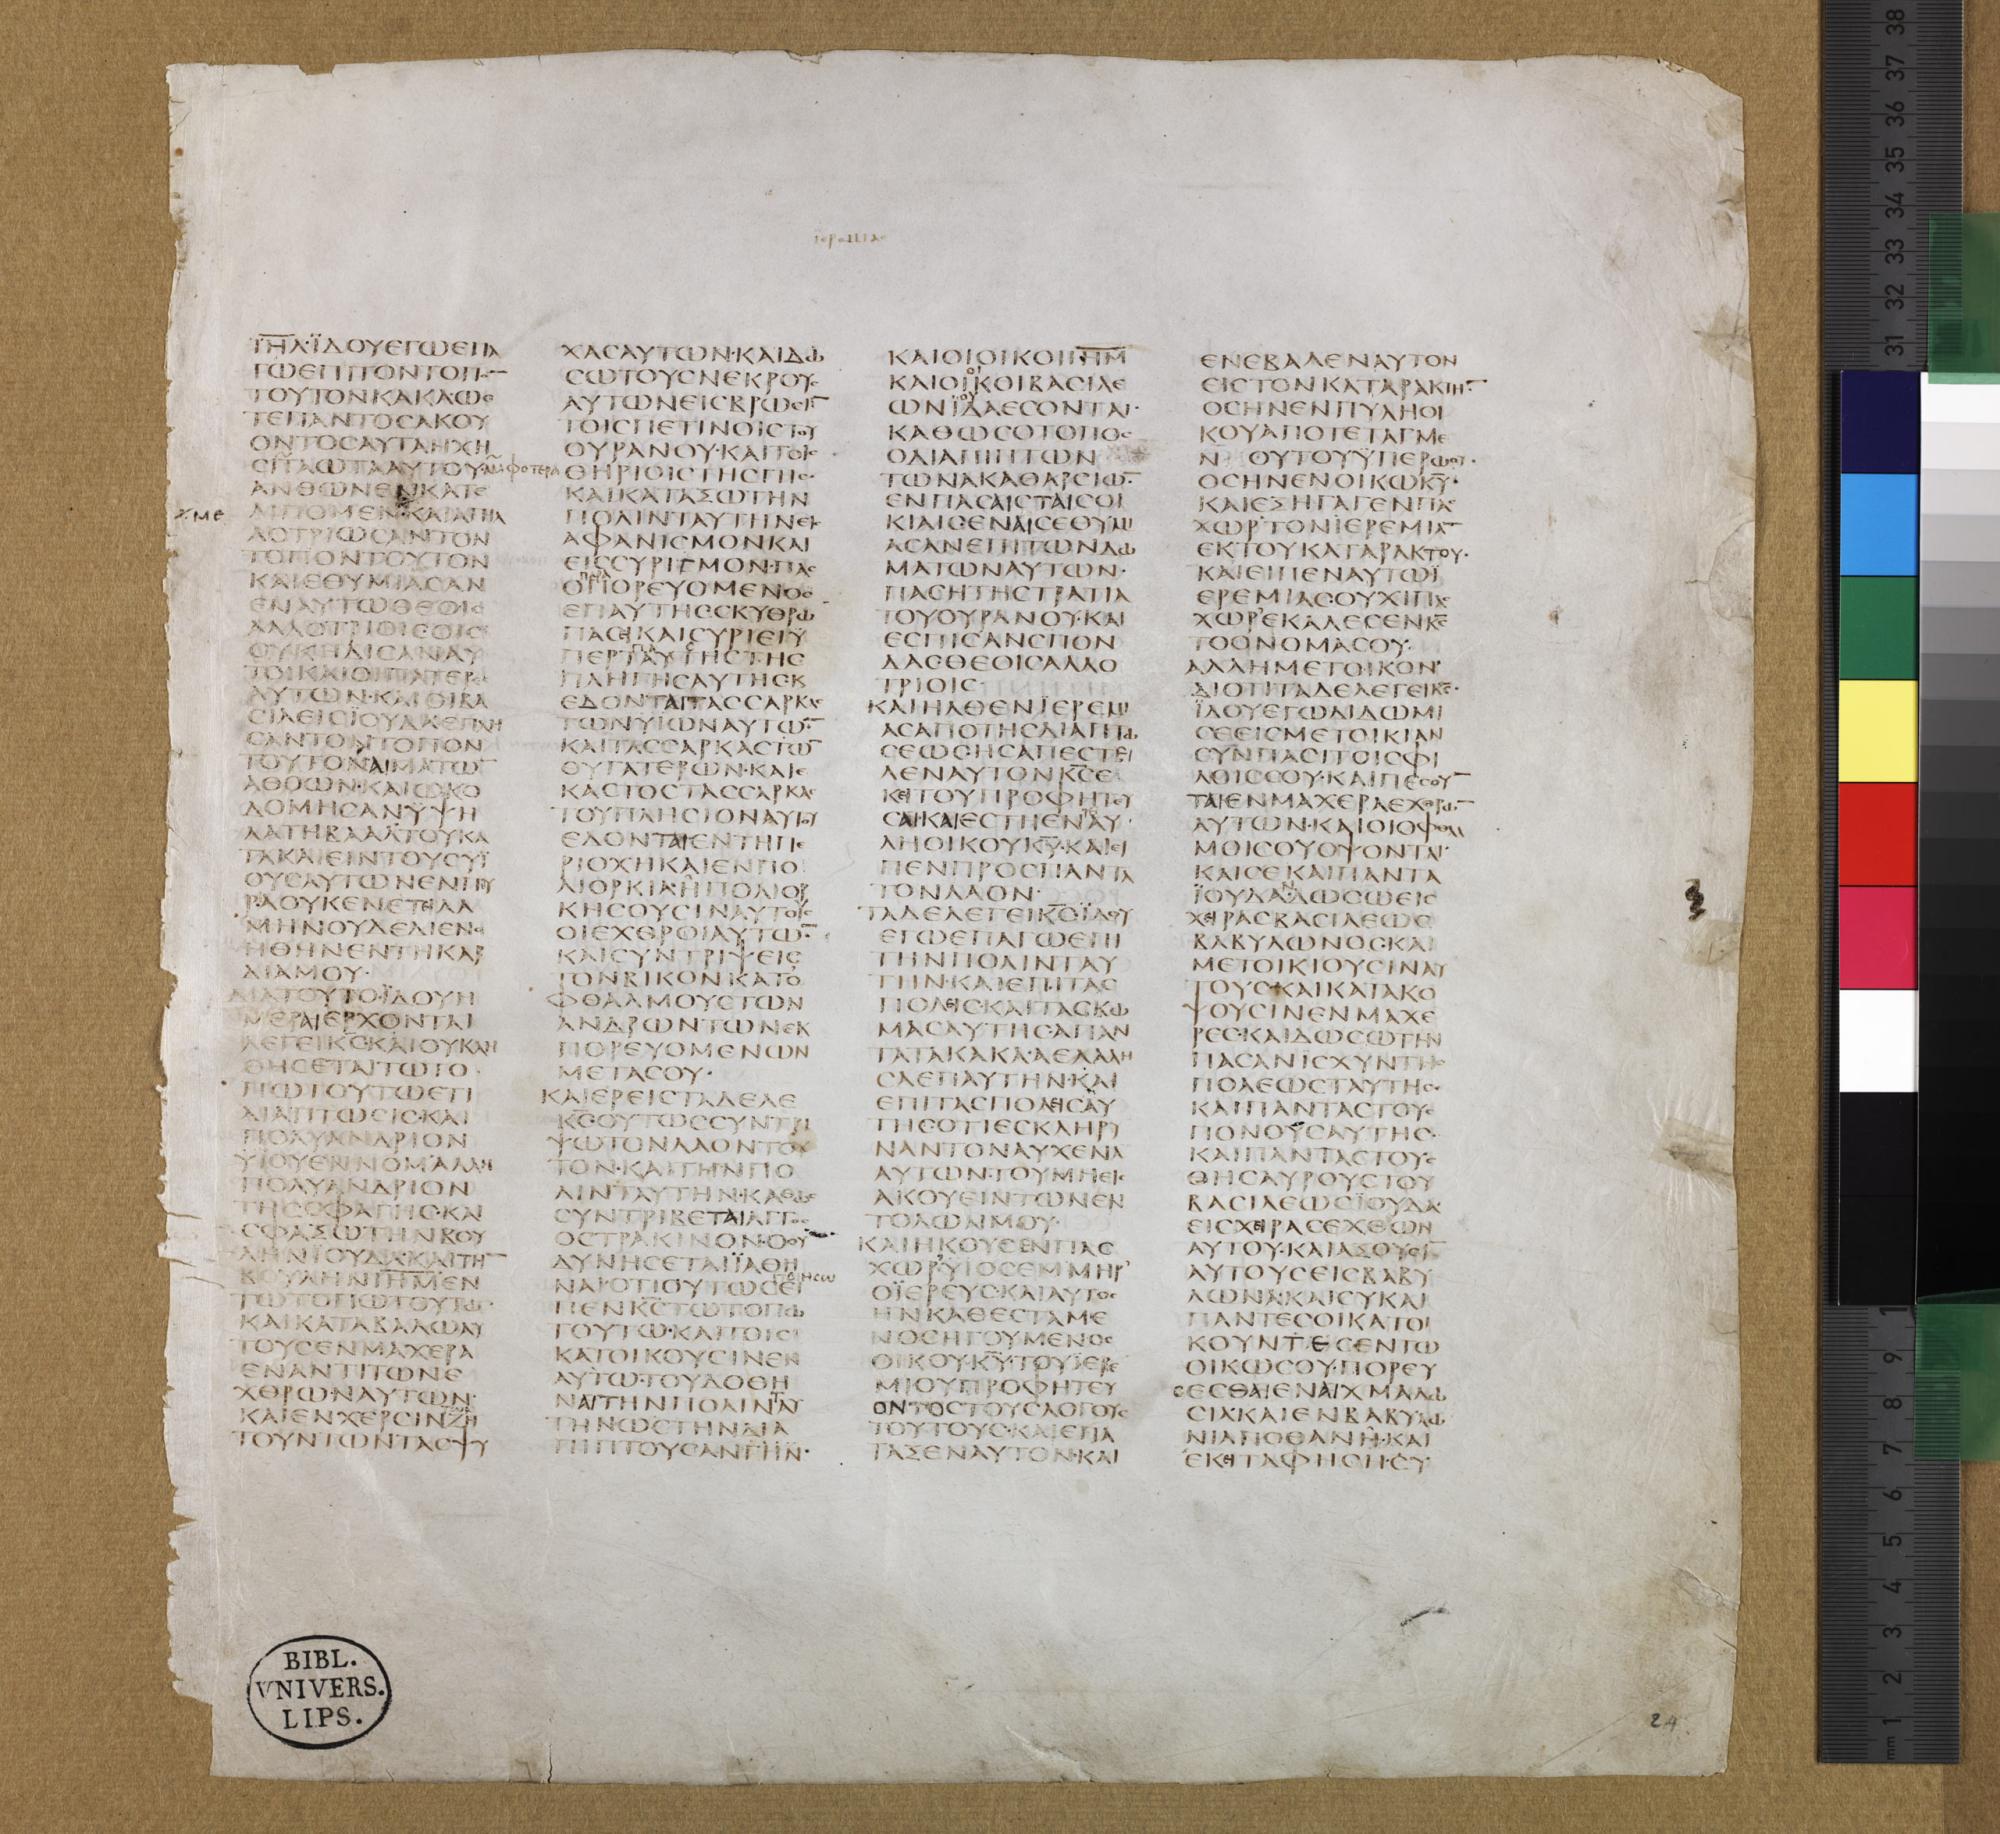 ΙΕΡΕΜΙΑΣ
ΤΗΛ·ΪΔΟΥΕΓΩΕΠΑ
ΓΩΕΠΙΤΟΝΤΟΠ
ΤΟΥΤΟΝΚΑΚΑΩϹ
ΤΕΠΑΝΤΟϹΑΚΟΥ
ΟΝΤΟϹΑΥΤΑΗΧΗ
ΑΜΦΟΤΕΡΑ
ΑΝΘΩΝΕΝΚΑΤΕ
ΛΙΠΟΜΕΝ·ΚΑΙΑΠΗΛ
ΛΟΤΡΙΩϹΑΝΤΟΝ
ΤΟΠΟΝΤΟΥΤΟΝ
ΚΑΙΕΘΥΜΙΑϹΑΝ
ΕΝΑΥΤΩΘΕΟΙϹ
ΑΛΛΟΤΡΙΟΙϹΟΙϹ
ΟΥΚΗΔΙϹΑΝΑΥ
ΤΟΙΚΑΙΟΙΠΑΤΕΡΕ
ΑΥΤΩΝ·ΚΑΙΟΙΒΑ
ϹΙΛΕΙϹΪΟΥΔΑΕΠΛΗ
ϹΑΝΤΟΝΤΟΠΟΝ
ΤΟΥΤΟΝΑΙΜΑΤΩ
ΑΘΟΩΝ·ΚΑΙΩΚΟ
ΔΟΜΗϹΑΝΫΨΗ
ΛΑΤΗΒΑΑΛΤΟΥΚΑ
ΤΑΚΑΙΕΙΝΤΟΥϹΥΪ
ΟΥϹΑΥΤΩΝΕΝΠΥ
ΡΑΟΥΚΕΝΕΤΙΛΑ
ΜΗΝΟΥΔΕΔΙΕΝΟ
ΗΘΗΝΕΝΤΗΚΑΡ
ΔΙΑΜΟΥ·
ΔΙΑΤΟΥΤΟ·ΪΔΟΥΗ
ΜΕΡΑΙΕΡΧΟΝΤΑΙ
ΛΕΓΕΙΚϹ·ΚΑΙΟΥΚΛΗ
ΘΗϹΕΤΑΙΤΩΤΟ
ΠΩΤΟΥΤΩΕΤΙ
ΔΙΑΠΤΩϹΙϹ·ΚΑΙ
ΠΟΛΥΑΝΔΡΙΟΝ
ΫΪΟΥΕΝΝΟΜ·ΑΛΛΗ
ΠΟΛΥΑΝΔΡΙΟΝ
ΤΗϹϹΦΑΓΗϹ·ΚΑΙ
ϹΦΑΞΩΤΗΝΒΟΥ
ΛΗΝΪΟΥΔΑ·ΚΑΙΤΗ
ΒΟΥΛΗΝΙΗΜΕΝ
ΤΩΤΟΠΩΤΟΥΤΩ·
ΚΑΙΚΑΤΑΒΑΛΩΑΥ
ΤΟΥϹΕΝΜΑΧΕΡΑ
ΕΝΑΝΤΙΤΩΝΕ
ΧΘΡΩΝΑΥΤΩΝ·
ΚΑΙΕΝΧΕΡϹΙΝΖΗ
ΤΟΥΝΤΩΝΤΑϹΨΥ
ΧΑϹΑΥΤΩΝ·ΚΑΙΔΩ
ϹΩΤΟΥϹΝΕΚΡΟΥϹ
ΑΥΤΩΝΕΙϹΒΡΩϹΙ
ΤΟΙϹΠΕΤΙΝΟΙϹΤΟΥ
ΟΥΡΑΝΟΥ·ΚΑΙΤΟΙϹ
ΘΗΡΙΟΙϹΤΗϹΓΗϹ·
ΚΑΙΚΑΤΑΞΩΤΗΝ
ΠΟΛΙΝΤΑΥΤΗΝΕΙϹ
ΑΦΑΝΙϹΜΟΝΚΑΙ
ΕΙϹϹΥΡΙΓΜΟΝ·ΠΑϹ
ΠΑΡΑ
ΟΠΟΡΕΥΟΜΕΝΟϹ
ΕΠΑΥΤΗϹϹΚΥΘΡΩ
ΠΑϹΕΙΚΑΙϹΥΡΙΕΙΫ
ΠΕΡΤΑΥΤΗϹΤΗϹ
ΠΛΗΓΗϹΑΥΤΗϹΚ
ΕΔΟΝΤΑΙΤΑϹϹΑΡΚΑϹ
ΤΩΝΥΙΩΝΑΥΤΩ·
ΚΑΙΤΑϹϹΑΡΚΑϹΤΩ
ΘΥΓΑΤΕΡΩΝ·ΚΑΙΕ
ΚΑϹΤΟϹΤΑϹϹΑΡΚΑϹ
ΤΟΥΠΛΗϹΙΟΝΑΥΤΟΥ
ΕΔΟΝΤΑΙΕΝΤΗΠΕ
ΡΙΟΧΗΚΑΙΕΝΠΟ
ΛΙΟΡΚΙΑ·ΗΠΟΛΙΟΡ
ΚΗϹΟΥϹΙΝΑΥΤΟΥϹ
ΟΙΕΧΘΡΟΙΑΥΤΩ·
ΚΑΙϹΥΝΤΡΙΨΕΙϹ
ΤΟΝΒΙΚΟΝΚΑΤΟ
ΦΘΑΛΜΟΥϹΤΩΝ
ΑΝΔΡΩΝΤΩΝΕΚ
ΠΟΡΕΥΟΜΕΝΩΝ
ΜΕΤΑϹΟΥ·
ΚΑΙΕΡΕΙϹΤΑΔΕΛΕ
ΚϹΟΥΤΩϹϹΥΝΤΡΙ
ΨΩΤΟΝΛΑΟΝΤΟΥ
ΤΟΝ·ΚΑΙΤΗΝΠΟ
ΛΙΝΤΑΥΤΗΝ·ΚΑΘΩϹ
ϹΥΝΤΡΙΒΕΤΑΙΑΓΓΟϹ
ΟϹΤΡΑΚΙΝΟΝ·ΟΟΥ
ΔΥΝΗϹΕΤΑΙΪΑΘΗ
ΠΟΙΗϹΩ
ΝΑΙ·ΟΤΙΟΥΤΩϹΕΙ
ΠΕΝΚϹΤΩΤΟΠΩ
ΤΟΥΤΩ·ΚΑΙΤΟΙϹ
ΚΑΤΟΙΚΟΥϹΙΝΕΝ
ΑΥΤΩ·ΤΟΥΔΟΘΗ
ΝΑΙΤΗΝΠΟΛΙΝΤΑΥ
ΤΗΝΩϹΤΗΝΔΙΑ
ΠΙΠΤΟΥϹΑΝΓΗΝ·
ΚΑΙΟΙΟΙΚΟΙΙΗΜ
ΚΑΙΟΙΟΙΚΟΙΒΑϹΙΛΕ
ΩΝΪΟΥΔΑΕϹΟΝΤΑΙ·
ΚΑΘΩϹΟΤΟΠΟϹ
ΟΔΙΑΠΙΠΤΩΝ
ΤΩΝΑΚΑΘΑΡϹΙΩ·
ΕΝΠΑϹΑΙϹΤΑΙϹΟΙ
ΚΙΑΙϹΕΝΑΙϹΕΘΥΜΙ
ΑϹΑΝΕΠΙΤΩΝΔΩ
ΜΑΤΩΝΑΥΤΩΝ·
ΠΑϹΗΤΗϹΤΡΑΤΙΑ
ΤΟΥΟΥΡΑΝΟΥ·ΚΑΙ
ΕϹΠΙϹΑΝϹΠΟΝ
ΔΑϹΘΕΟΙϹΑΛΛΟ
ΤΡΙΟΙϹ
ΚΑΙΗΛΘΕΝΙΕΡΕΜΙ
ΑϹΑΠΟΤΗϹΔΙΑΠΤΩ
ϹΕΩϹΗϹΑΠΕϹΤΕΙ
ΛΕΝΑΥΤΟΝΚϹΕ
ΚΕΙΤΟΥΠΡΟΦΗΤΕΥ
ϹΑΙΚΑΙΕϹΤΗΕΝΑΥ·
ΛΗΟΙΚΟΥΚΥ·ΚΑΙΕΙ
ΠΕΝΠΡΟϹΠΑΝΤΑ
ΤΟΝΛΑΟΝ·
ΤΑΔΕΛΕΓΕΙΚϹΪΔΟΥ
ΕΓΩΕΠΑΓΩΕΠΙ
ΤΗΝΠΟΛΙΝΤΑΥ
ΤΗΝ·ΚΑΙΕΠΙΤΑϹ
ΠΟΛΕΙϹ·ΚΑΙΤΑϹΚΩ
ΜΑϹΑΥΤΗϹ·ΑΠΑΝ
ΤΑΤΑΚΑΚΑ·ΑΕΛΑΛΗ
ϹΑΕΠΑΥΤΗΝ·ΚΑΙ
ΕΠΙΤΑϹΠΟΛΕΙϹΑΥ
ΤΗϹΟΤΙΕϹΚΛΗΡΥ
ΝΑΝΤΟΝΑΥΧΕΝΑ
ΑΥΤΩΝ·ΤΟΥΜΗΕΙϹ
ΑΚΟΥΕΙΝΤΩΝΕΝ
ΤΟΛΩΝΜΟΥ·
ΚΑΙΗΚΟΥϹΕΝΠΑϹ
ΧΩΡΥΙΟϹΕΜΜΗΡ
ΟΪΕΡΕΥϹ·ΚΑΙΑΥΤΟϹ
ΗΝΚΑΘΕϹΤΑΜΕ
ΝΟϹΗΓΟΥΜΕΝΟϹ
ΟΙΚΟΥ·ΚΥ·ΤΟΥΪΕΡΕ
ΜΙΟΥΠΡΟΦΗΤΕΥ
ΟΝΤΟϹΤΟΥϹΛΟΓΟΥϹ
ΤΟΥΤΟΥϹ·ΚΑΙΕΠΑ
ΤΑΞΕΝΑΥΤΟΝ·ΚΑΙ
ΕΝΕΒΑΛΕΝΑΥΤΟΝ
ΕΙϹΤΟΝΚΑΤΑΡΑΚΤΗ
ΟϹΗΝΕΝΠΥΛΗΟΙ
ΚΟΥΑΠΟΤΕΤΑΓΜΕ
Ν ΟΥΤΟΥΫΠΕΡΩΟΥ·
ΟϹΗΝΕΝΟΙΚΩΚΥ·
ΚΑΙΕΞΗΓΑΓΕΝΠΑϹ
ΧΩΡΤΟΝΙΕΡΕΜΙΑ
ΕΚΤΟΥΚΑΤΑΡΑΚΤΟΥ·
ΚΑΙΕΙΠΕΝΑΥΤΩΪ
ΕΡΕΜΙΑϹΟΥΧΙΠΑϹ
ΧΩΡΕΚΑΛΕϹΕΝΚϹ
ΤΟΟΝΟΜΑϹΟΥ·
ΑΛΛΗΜΕΤΟΙΚΟΝ
ΔΙΟΤΙΤΑΔΕΛΕΓΕΙΚϹ·
ΪΔΟΥΕΓΩΔΙΔΩΜΙ
ϹΕΕΙϹΜΕΤΟΙΚΙΑΝ
ϹΥΝΠΑϹΙΤΟΙϹΦΙ
ΛΟΙϹϹΟΥ·ΚΑΙΠΕϹΟΥ
ΤΑΙΕΝΜΑΧΕΡΑΕΧΘΡΩ
ΑΥΤΩΝ·ΚΑΙΟΙΟΦΘΑΛ
ΜΟΙϹΟΥΟΨΟΝΤΑΙ·
ΚΑΙϹΕΚΑΙΠΑΝΤΑ
ΪΟΥΔΑΝΔΩϹΩΕΙϹ
ΧΕΙΡΑϹΒΑϹΙΛΕΩϹ
ΒΑΒΥΛΩΝΟϹ·ΚΑΙ
ΜΕΤΟΙΚΙΟΥϹΙΝΑΥ
ΤΟΥϹ·ΚΑΙΚΑΤΑΚΟ
ΨΟΥϹΙΝΕΝΜΑΧΕ
ΡΕϹ·ΚΑΙΔΩϹΩΤΗΝ
ΠΑϹΑΝΙϹΧΥΝΤΗϹ
ΠΟΛΕΩϹΤΑΥΤΗϹ·
ΚΑΙΠΑΝΤΑϹΤΟΥϹ
ΠΟΝΟΥϹΑΥΤΗϹ·
ΚΑΙΠΑΝΤΑϹΤΟΥϹ
ΘΗϹΑΥΡΟΥϹΤΟΥ
ΒΑϹΙΛΕΩϹΪΟΥΔΑ
ΕΙϹΧΕΙΡΑϹΕΧΘΩΝ
ΑΥΤΟΥ·ΚΑΙΑΞΟΥϹΙ
ΑΥΤΟΥϹΕΙϹΒΑΒΥ
ΛΩΝΑ·ΚΑΙϹΥΚΑΙ
ΠΑΝΤΕϹΟΙΚΑΤΟΙ
ΚΟΥΝΤΕϹΕΝΤΩ
ΟΙΚΩϹΟΥ·ΠΟΡΕΥ
ϹΕϹΘΑΙΕΝΑΙΧΜΑΛΩ
ϹΙΑ·ΚΑΙΕΝΒΑΒΥΛΩ
ΝΙΑΠΟΘΑΝΗ·ΚΑΙ
ΕΚΕΙΤΑΦΗϹΗ·ϹΥ
BIBL.
VNIVERS.
LIPS.
24